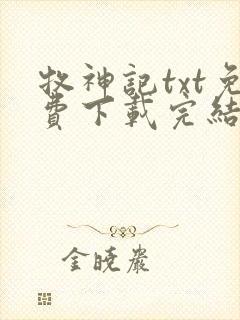 牧神記txt免
費下載完結
金曉巖